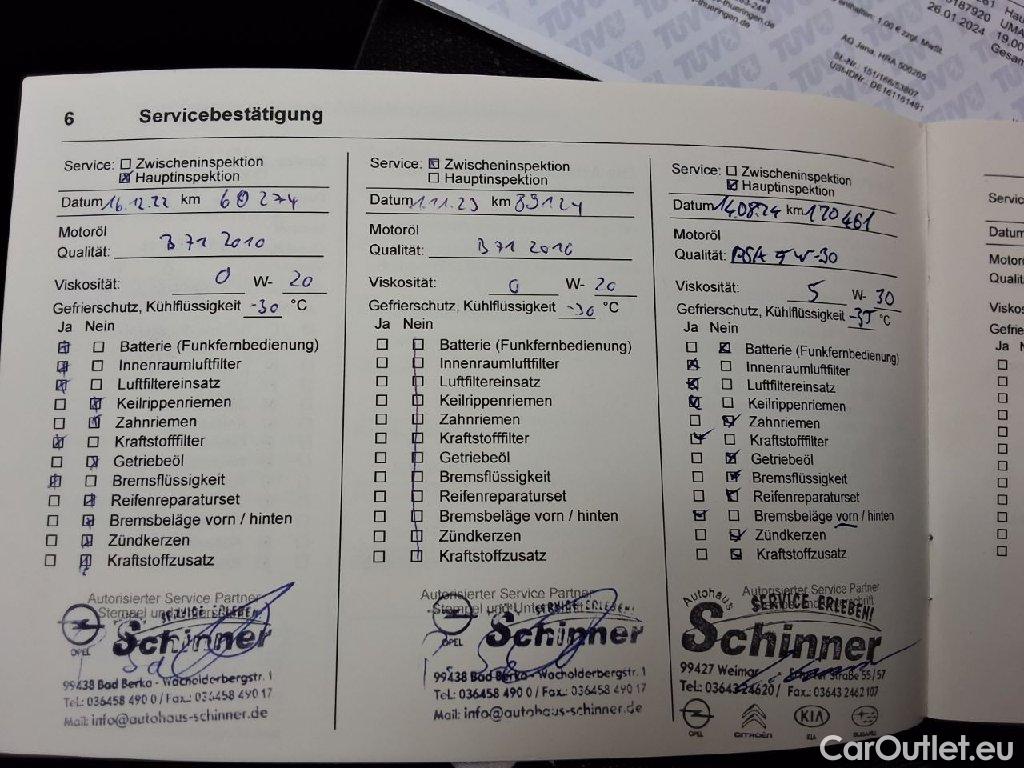 6 Servicebestätigung
Service: Zwischeninspektion
Hauptinspektion
Datum 16.12.22 km 60 274
Motoröl
Qualität: B 71 2010
Viskosität: 0 W- 20
Gefrierschutz, Kühlflüssigkeit -30 °C
Ja Nein
Batterie (Funkfernbedienung)
Innenraumluftfilter
Luftfiltereinsatz
Keilrippenriemen
Zahnriemen
Kraftstofffilter
Getriebeöl
Bremsflüssigkeit
Reifenreparaturset
Bremsbeläge vorn / hinten
Zündkerzen
Kraftstoffzusatz
Autorisierter Service Partner
Stempel und
SERVICE ERLEBEN!
OPEL
Schinner
99438 Bad Berka - Wacholderbergstr. 1
Tel.: 036458 490 0 / Fax.: 036458 490 17
Mail: info@autohaus-schinner.de
Service: Zwischeninspektion
Hauptinspektion
Datum 1.11.23 km 89124
Motoröl
Qualität: B 71 2010
Viskosität: 0 W- 20
Gefrierschutz, Kühlflüssigkeit -30 °C
Ja Nein
Batterie (Funkfernbedienung)
Innenraumluftfilter
Luftfiltereinsatz
Keilrippenriemen
Zahnriemen
Kraftstofffilter
Getriebeöl
Bremsflüssigkeit
Reifenreparaturset
Bremsbeläge vorn / hinten
Zündkerzen
Kraftstoffzusatz
Autorisierter Service Partner
Stempel und
SERVICE ERLEBEN!
OPEL
Schinner
99438 Bad Berka - Wacholderbergstr. 1
Tel.: 036458 490 0 / Fax.: 036458 490 17
Mail: info@autohaus-schinner.de
Service: Zwischeninspektion
Hauptinspektion
Datum 14.08.24 km 120 461
Motoröl
Qualität: PSA 5W-30
Viskosität: 5 W- 30
Gefrierschutz, Kühlflüssigkeit -35 °C
Ja Nein
Batterie (Funkfernbedienung)
Innenraumluftfilter
Luftfiltereinsatz
Keilrippenriemen
Zahnriemen
Kraftstofffilter
Getriebeöl
Bremsflüssigkeit
Reifenreparaturset
Bremsbeläge vorn / hinten
Zündkerzen
Kraftstoffzusatz
Autorisierter Service Partner
Autohaus
SERVICE ERLEBEN!
Schinner
99427 Weimar Straße 55/57
Tel.: 03643 24620 / Fax.: 03643 2462107
OPEL CITROËN KIA SUBARU
26.01.2024 19,00
enthalten: 1,00 € zzgl. MwSt.
AG Jena, HRA 500265
St.-Nr.: 151/166/53802
USt-IdNr.: DE161181491
TÜV
Ja
CarOutlet.eu